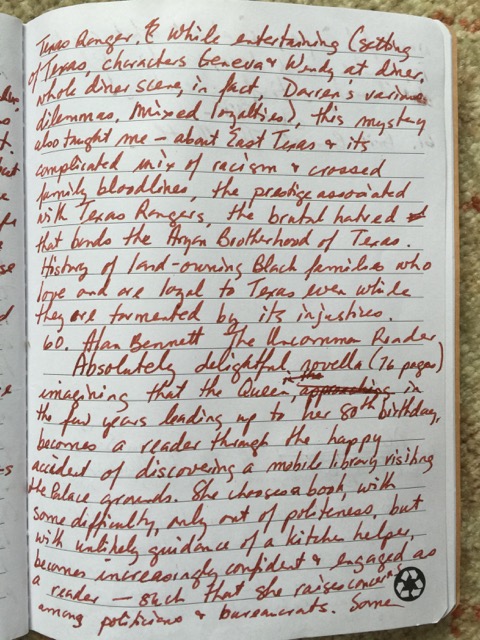 Texas Ranger. & While entertaining (setting
of Texas, characters Geneva & Wendy at diner,
whole diner scene, in fact, Darren's various
dilemmas. Mixed loyalties), this mystery
also taught me — about East Texas & its
complicated mix of racism & crossed
family bloodlines, the prestige associated
with Texas Rangers, the brutal hatred
that binds the Aryan Brotherhood of Texas.
History of land-owning Black families who
love and are loyal to Texas even while
they are tormented by its injustices.
60. Alan Bennett The Uncommon Reader
Absolutely delightful novella (76 pages)
imagining that the Queen, in the approaching in
the few years leading up to her 80th birthday,
becomes a reader through the happy
accident of discovering a mobile library visiting
the Palace grounds. She chooses a book, with
some difficulty, only out of politeness, but
with unlikely guidance of a kitchen helper,
becomes increasingly confident & engaged as
a reader — such that she raises concerns
among politicians & bureaucrats. Some